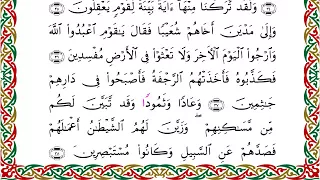 وَلَقَد تَّرَكْنَا مِنْهَآ ءَايَةًۢ بَيِّنَةً لِّقَوْمٍ يَعْقِلُونَ ﴿٣٥﴾
وَإِلَىٰ مَدْيَنَ أَخَاهُمْ شُعَيْبًا فَقَالَ يَٰقَوْمِ ٱعْبُدُوا۟ ٱللَّهَ
وَٱرْجُوا۟ ٱلْيَوْمَ ٱلْءَاخِرَ وَلَا تَعْثَوْا۟ فِى ٱلْأَرْضِ مُفْسِدِينَ ﴿٣٦﴾
فَكَذَّبُوهُ فَأَخَذَتْهُمُ ٱلرَّجْفَةُ فَأَصْبَحُوا۟ فِى دَارِهِمْ
جَٰثِمِينَ ﴿٣٧﴾ وَعَادًا وَثَمُودَا۟ وَقَد تَّبَيَّنَ لَكُم
مِّن مَّسَٰكِنِهِمْ ۖ وَزَيَّنَ لَهُمُ ٱلشَّيْطَٰنُ أَعْمَٰلَهُمْ
فَصَدَّهُمْ عَنِ ٱلسَّبِيلِ وَكَانُوا۟ مُسْتَبْصِرِينَ ﴿٣٨﴾